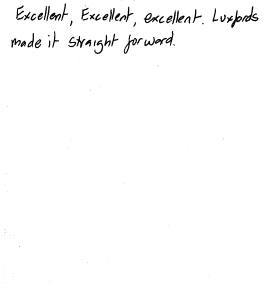 Excellent, Excellent, excellent. Luxfords
made it straight forward.